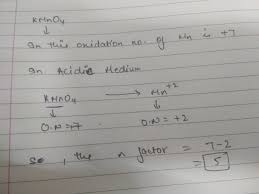 KMnO4
↓
In this oxidation no. of Mn is +7
In Acidic Medium
KMnO4 → Mn+2
↓ ↓
O.N = +7 O.N = +2
So, the n factor = 7-2
= 5